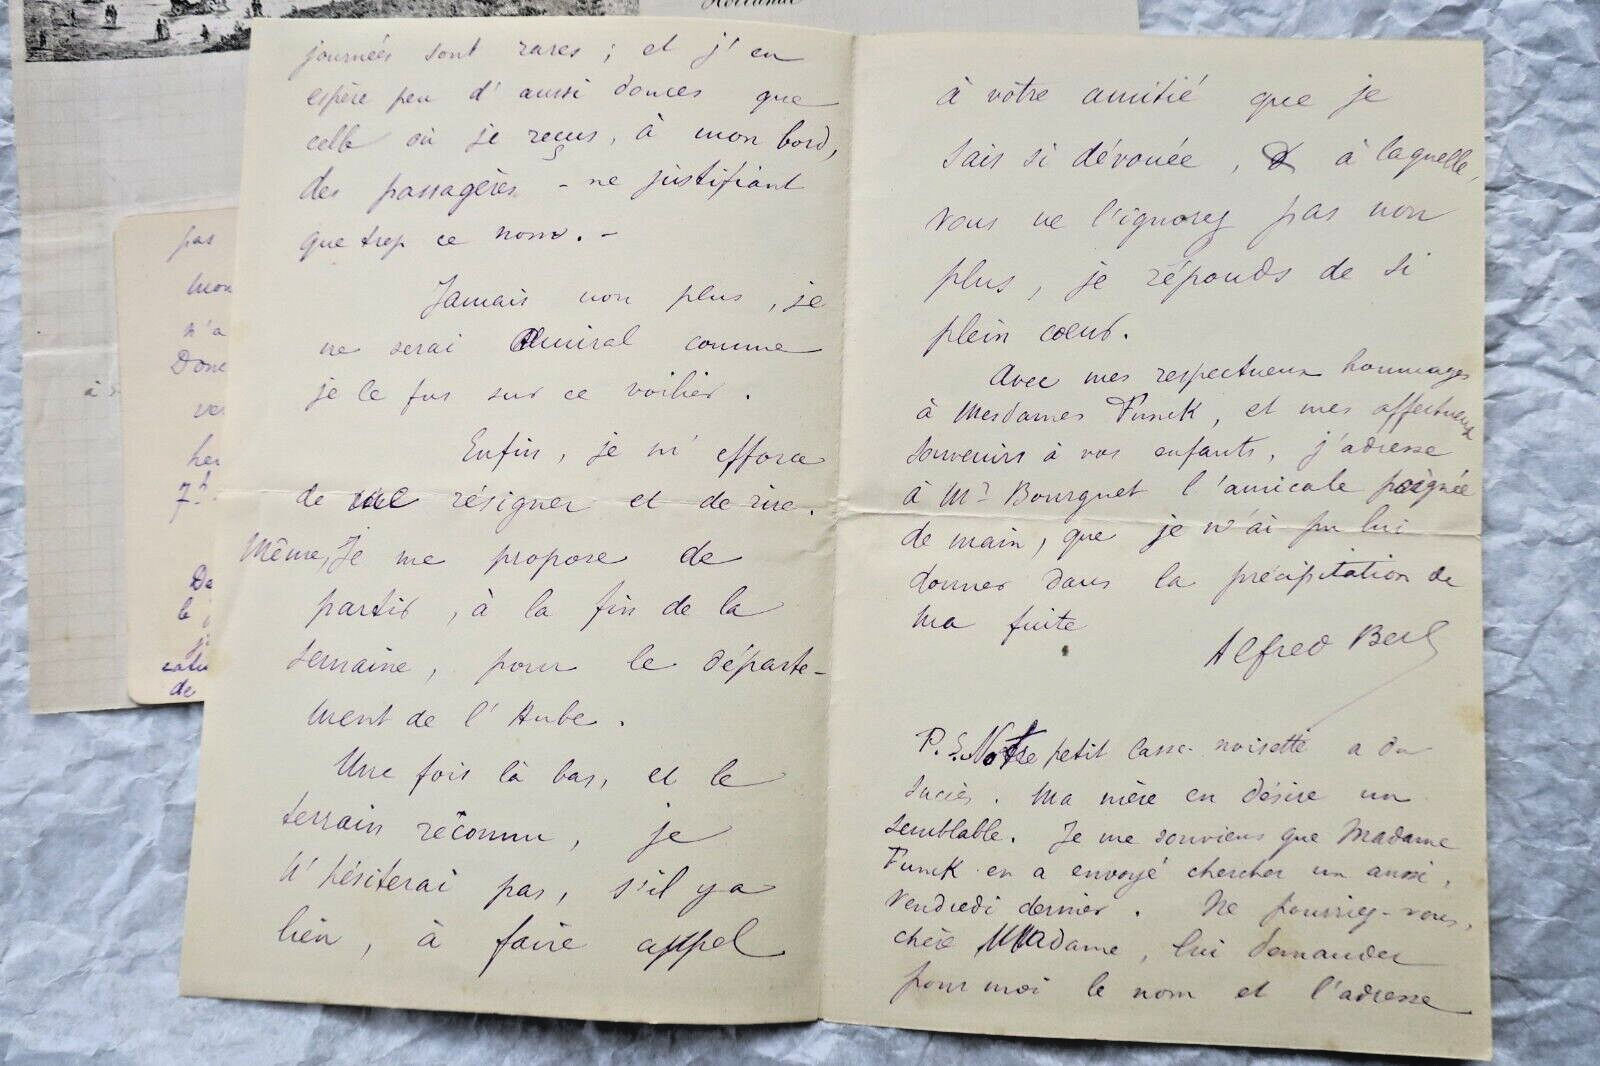 Hollande
journées sont rares ; et j'en
espère peu d'aussi douces que
celle où je reçus, à mon bord,
des passagères - ne justifiant
que trop ce nom. -
Jamais non plus, je
ne serai Amiral comme
je le fus sur ce voilier.
Enfin, je m'efforce
de me résigner et de rire.
Même, je me propose de
partir, à la fin de la
semaine, pour le départe-
ment de l'Aube.
Une fois là bas, et le
terrain reconnu, je
n'hésiterai pas, s'il y a
lieu, à faire appel
à vôtre amitié que je
sais si dévouée, & à laquelle,
vous ne l'ignorez pas non
plus, je réponds de si
plein cœur.
Avec mes respectueux hommages
à Mesdames Funck, et mes affectueux
souvenirs à vos enfants, j'adresse
à Mr Bourguet l'amicale poignée
de main, que je n'ai pu lui
donner dans la précipitation de
ma fuite
Alfred Berl
P.S. Notre petit casse-noisette a du
succès. Ma mère en désire un
semblable. Je me souviens que Madame
Funck en a envoyé chercher un aussi,
Vendredi dernier. Ne pourriez-vous,
chère Madame, lui demander
pour moi le nom et l'adresse
pas
mon
n'a
Donc
ver
her
7h
De
le
de